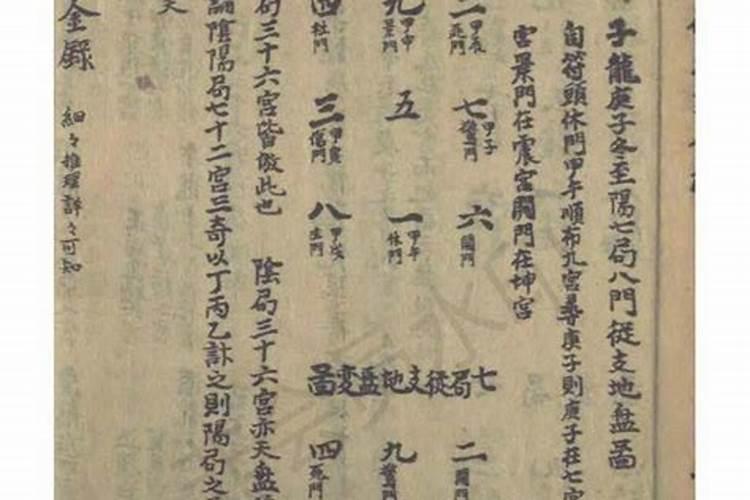 子龍庚子冬至陽七局八門從支地盤啚
自符頭休門甲午順布九宮尋庚子則庚子在七宮
宮景門在震宮開門在坤宮
二 甲辰 死門
七 甲子 驚門
六 開門
九 甲申 景門
五
一 甲午 休門
四 杜門
三 甲寅 傷門
八 甲戌 生門
七局從支地盤變啚
二 開門
九 驚門
四 死門
局三十六宮皆倣此也 陰局三十六宮亦天盤
論陰陽局七十二宮三奇以丁丙乙訃之則陽局之
天
金錄 細々推理詳々可知